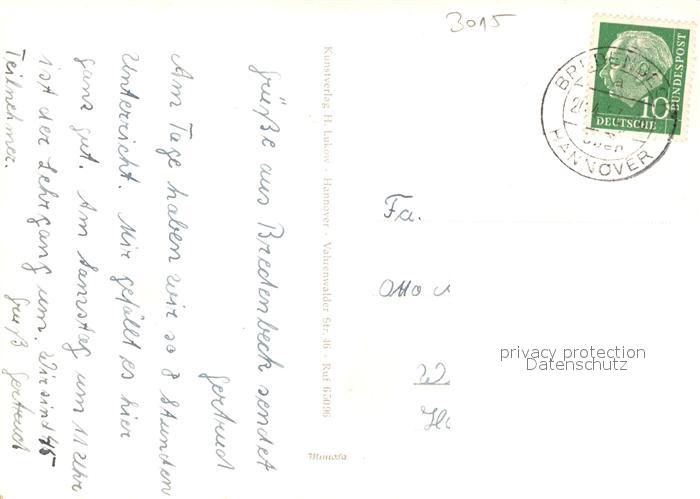 3015
Grüße aus Bredenbeck sendet
Gertrud
Am Tage haben wir so 8 Stunden
Unterricht. Mir gefällt es hier
ganz gut. Am Samstag um 11 Uhr
ist der Lehrgang um. Wir sind 45
Teilnehmer.
Gruß Gertrud
Kunstverlag H. Lukow - Hannover - Vahrenwalder Str. 46 - Ruf 65096
Mimosa
HANNOVER
a
10
DEUTSCHE
BUNDESPOST
Fa.
Otto
W
privacy protection
Datenschutz